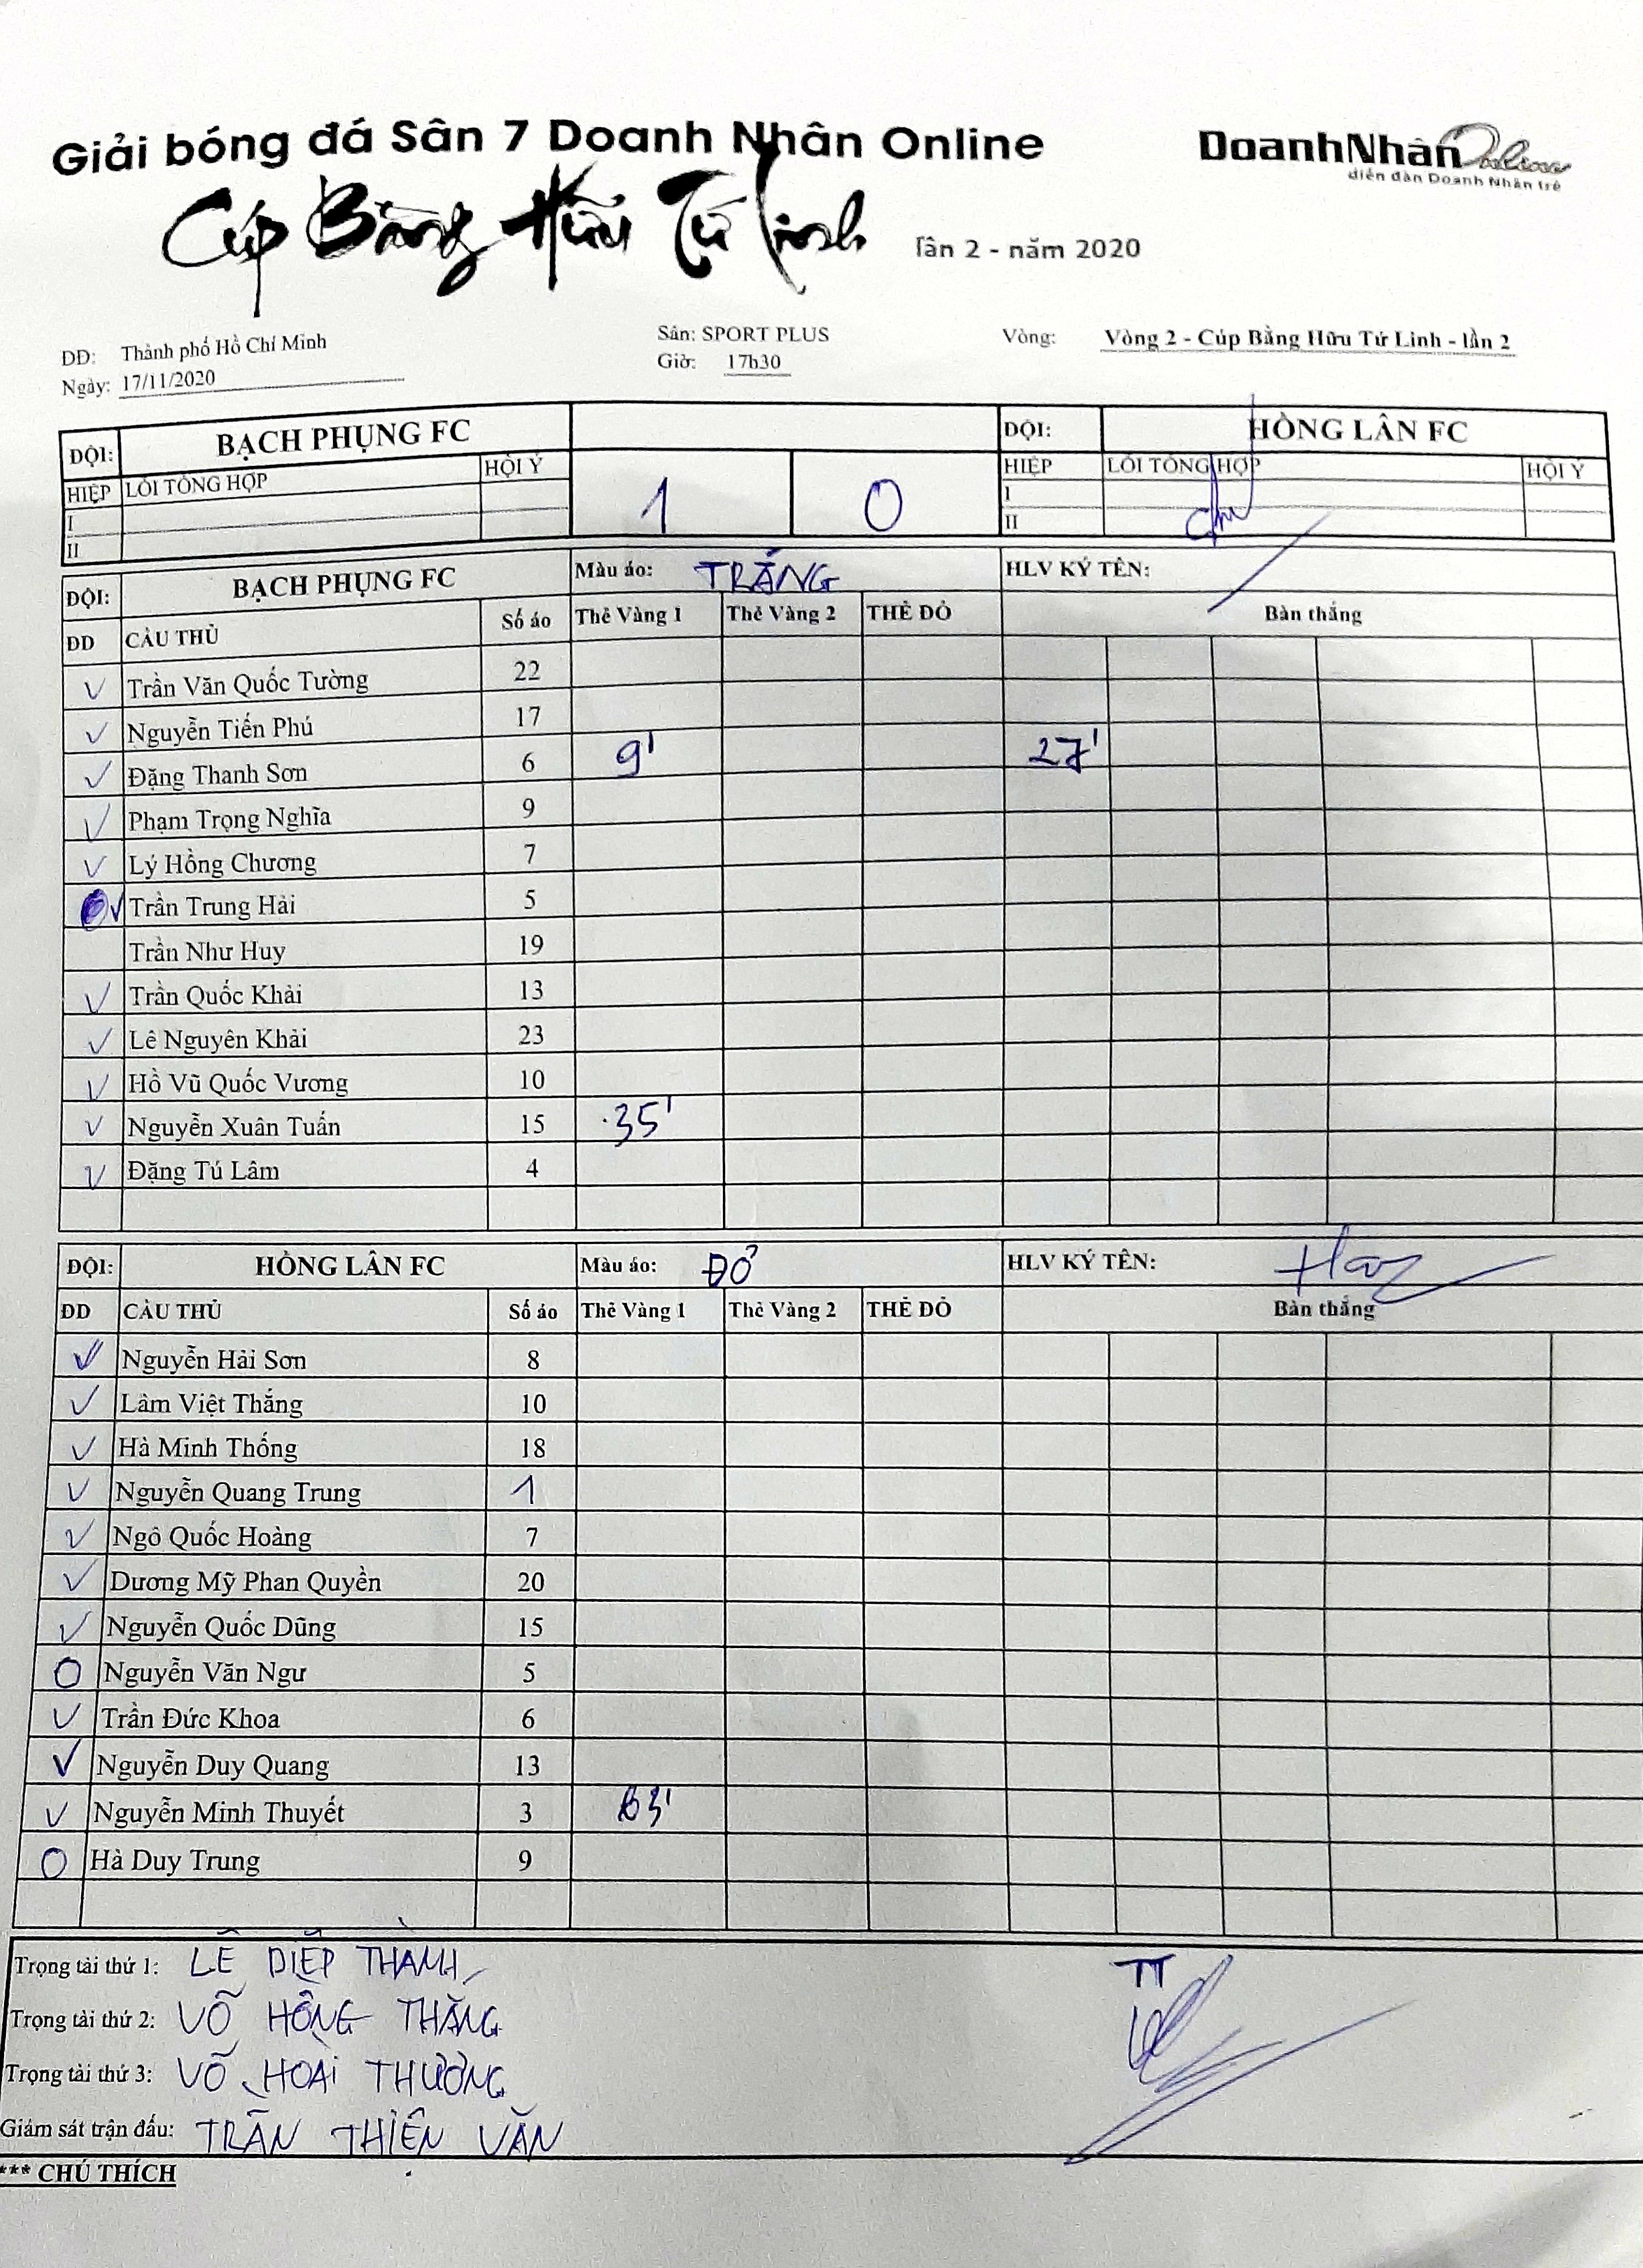 Giải bóng đá Sân 7 Doanh Nhân Online
DoanhNhân Online
diễn đàn Doanh Nhân trẻ
Cúp Bằng Hữu Tứ Linh lần 2 - năm 2020
ĐĐ: Thành phố Hồ Chí Minh Sân: SPORT PLUS Vòng: Vòng 2 - Cúp Bằng Hữu Tứ Linh - lần 2
Ngày: 17/11/2020 Giờ: 17h30
ĐỘI: BẠCH PHỤNG FC ĐỘI: HỒNG LÂN FC
HIỆP LỖI TỔNG HỢP HỘI Ý 1 0 HIỆP LỖI TỔNG HỢP HỘI Ý
I I
II II
ĐỘI: BẠCH PHỤNG FC Màu áo: TRẮNG HLV KÝ TÊN:
ĐD CẦU THỦ Số áo Thẻ Vàng 1 Thẻ Vàng 2 THẺ ĐỎ Bàn thắng
Trần Văn Quốc Tường 22
Nguyễn Tiến Phú 17
Đặng Thanh Sơn 6 9' 27'
Phạm Trọng Nghĩa 9
Lý Hồng Chương 7
Trần Trung Hải 5
Trần Như Huy 19
Trần Quốc Khải 13
Lê Nguyên Khải 23
Hồ Vũ Quốc Vương 10
Nguyễn Xuân Tuấn 15 35'
Đặng Tú Lâm 4
ĐỘI: HỒNG LÂN FC Màu áo: ĐỎ HLV KÝ TÊN:
ĐD CẦU THỦ Số áo Thẻ Vàng 1 Thẻ Vàng 2 THẺ ĐỎ Bàn thắng
Nguyễn Hải Sơn 8
Lâm Việt Thắng 10
Hà Minh Thống 18
Nguyễn Quang Trung 1
Ngô Quốc Hoàng 7
Dương Mỹ Phan Quyền 20
Nguyễn Quốc Dũng 15
Nguyễn Văn Ngư 5
Trần Đức Khoa 6
Nguyễn Duy Quang 13
Nguyễn Minh Thuyết 3
Hà Duy Trung 9
Trọng tài thứ 1: LÊ DIỆP THÀNH TT
Trọng tài thứ 2: VÕ HỒNG THẮNG
Trọng tài thứ 3: VÕ HOÀI THƯƠNG
Giám sát trận đấu: TRẦN THIÊN VĂN
*** CHÚ THÍCH